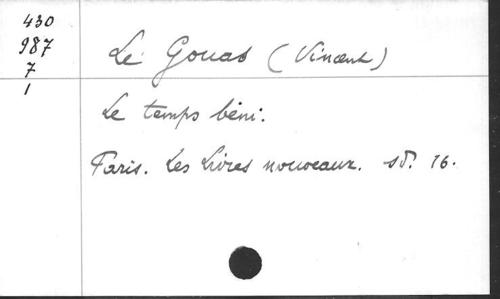 430
987
7
1
Le Gouas (Vincent)
Le temps béni.
Paris. Les Livres nouveaux. sd. 16.